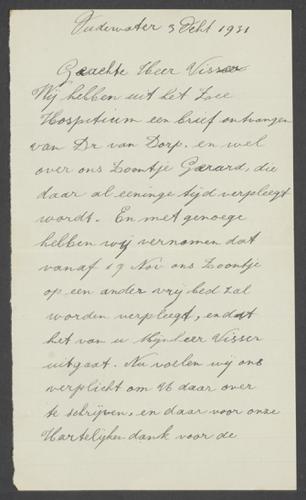 Oudewater 3 Decbt 1931
Geachte Heer Visser
Wij hebben uit het Zee
Hospitium een brief ontvangen
van Dr van Dorp. en wel
over ons Zoontje Gerard, die
daar al eeninge tijd verpleegt
wordt. En met genoege
hebben wij vernomen dat
vanaf 19 Nov ons Zoontje
op een ander vrij bed zal
worden verpleegt, en dat
het van u Mijnheer Visser
uitgaat. Nu voelen wij ons
verplicht om U daar over
te schrijven, en daar voor onze
Hartelijken dank voor de